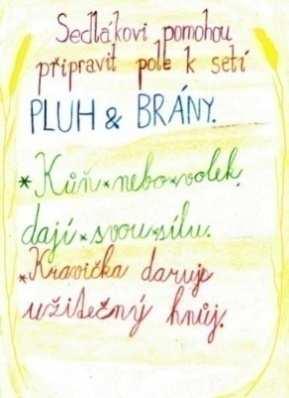 Sedlákovi pomohou
připravit pole k setí
PLUH & BRÁNY.
*Kůň*nebo*volek
dají*svou*sílu.
*Kravička daruje
užitečný hnůj.